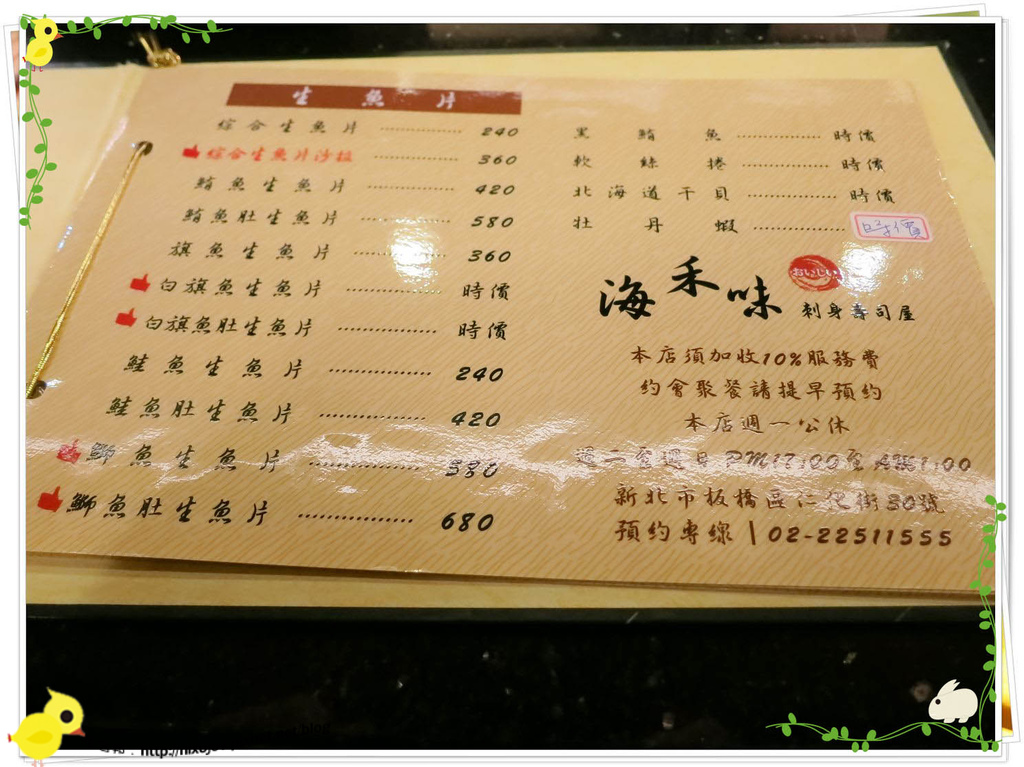 生魚片
綜合生魚片 240
綜合生魚片沙拉 360
鮪魚生魚片 420
鮪魚肚生魚片 580
旗魚生魚片 360
白旗魚生魚片 時價
白旗魚肚生魚片 時價
鮭魚生魚片 240
鮭魚肚生魚片 420
鰤魚生魚片 380
鰤魚肚生魚片 680
黑鮪魚 時價
軟絲捲 時價
北海道干貝 時價
牡丹蝦 時價
海禾味 おいしい
刺身壽司屋
本店須加收10%服務費
約會聚餐請提早預約
本店週一公休
週二至週日PM17:00至AM1:00
新北市板橋區仁化街30號
預約專線|02-22511555